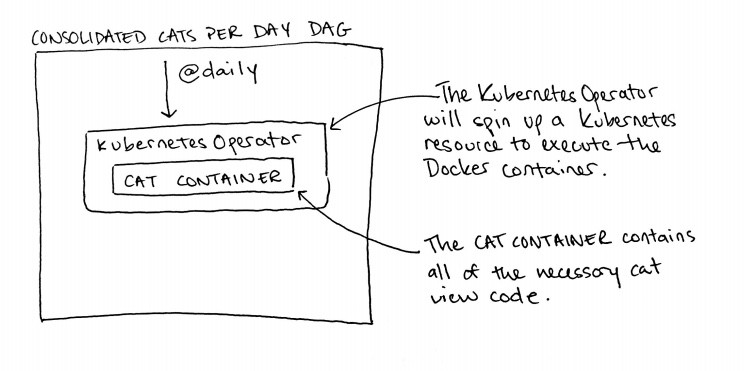 CONSOLIDATED CATS PER DAY DAG
@daily
Kubernetes Operator
CAT CONTAINER
The Kubernetes Operator
will spin up a Kubernetes
resource to execute the
Docker container.
The CAT CONTAINER contains
all of the necessary cat
view code.